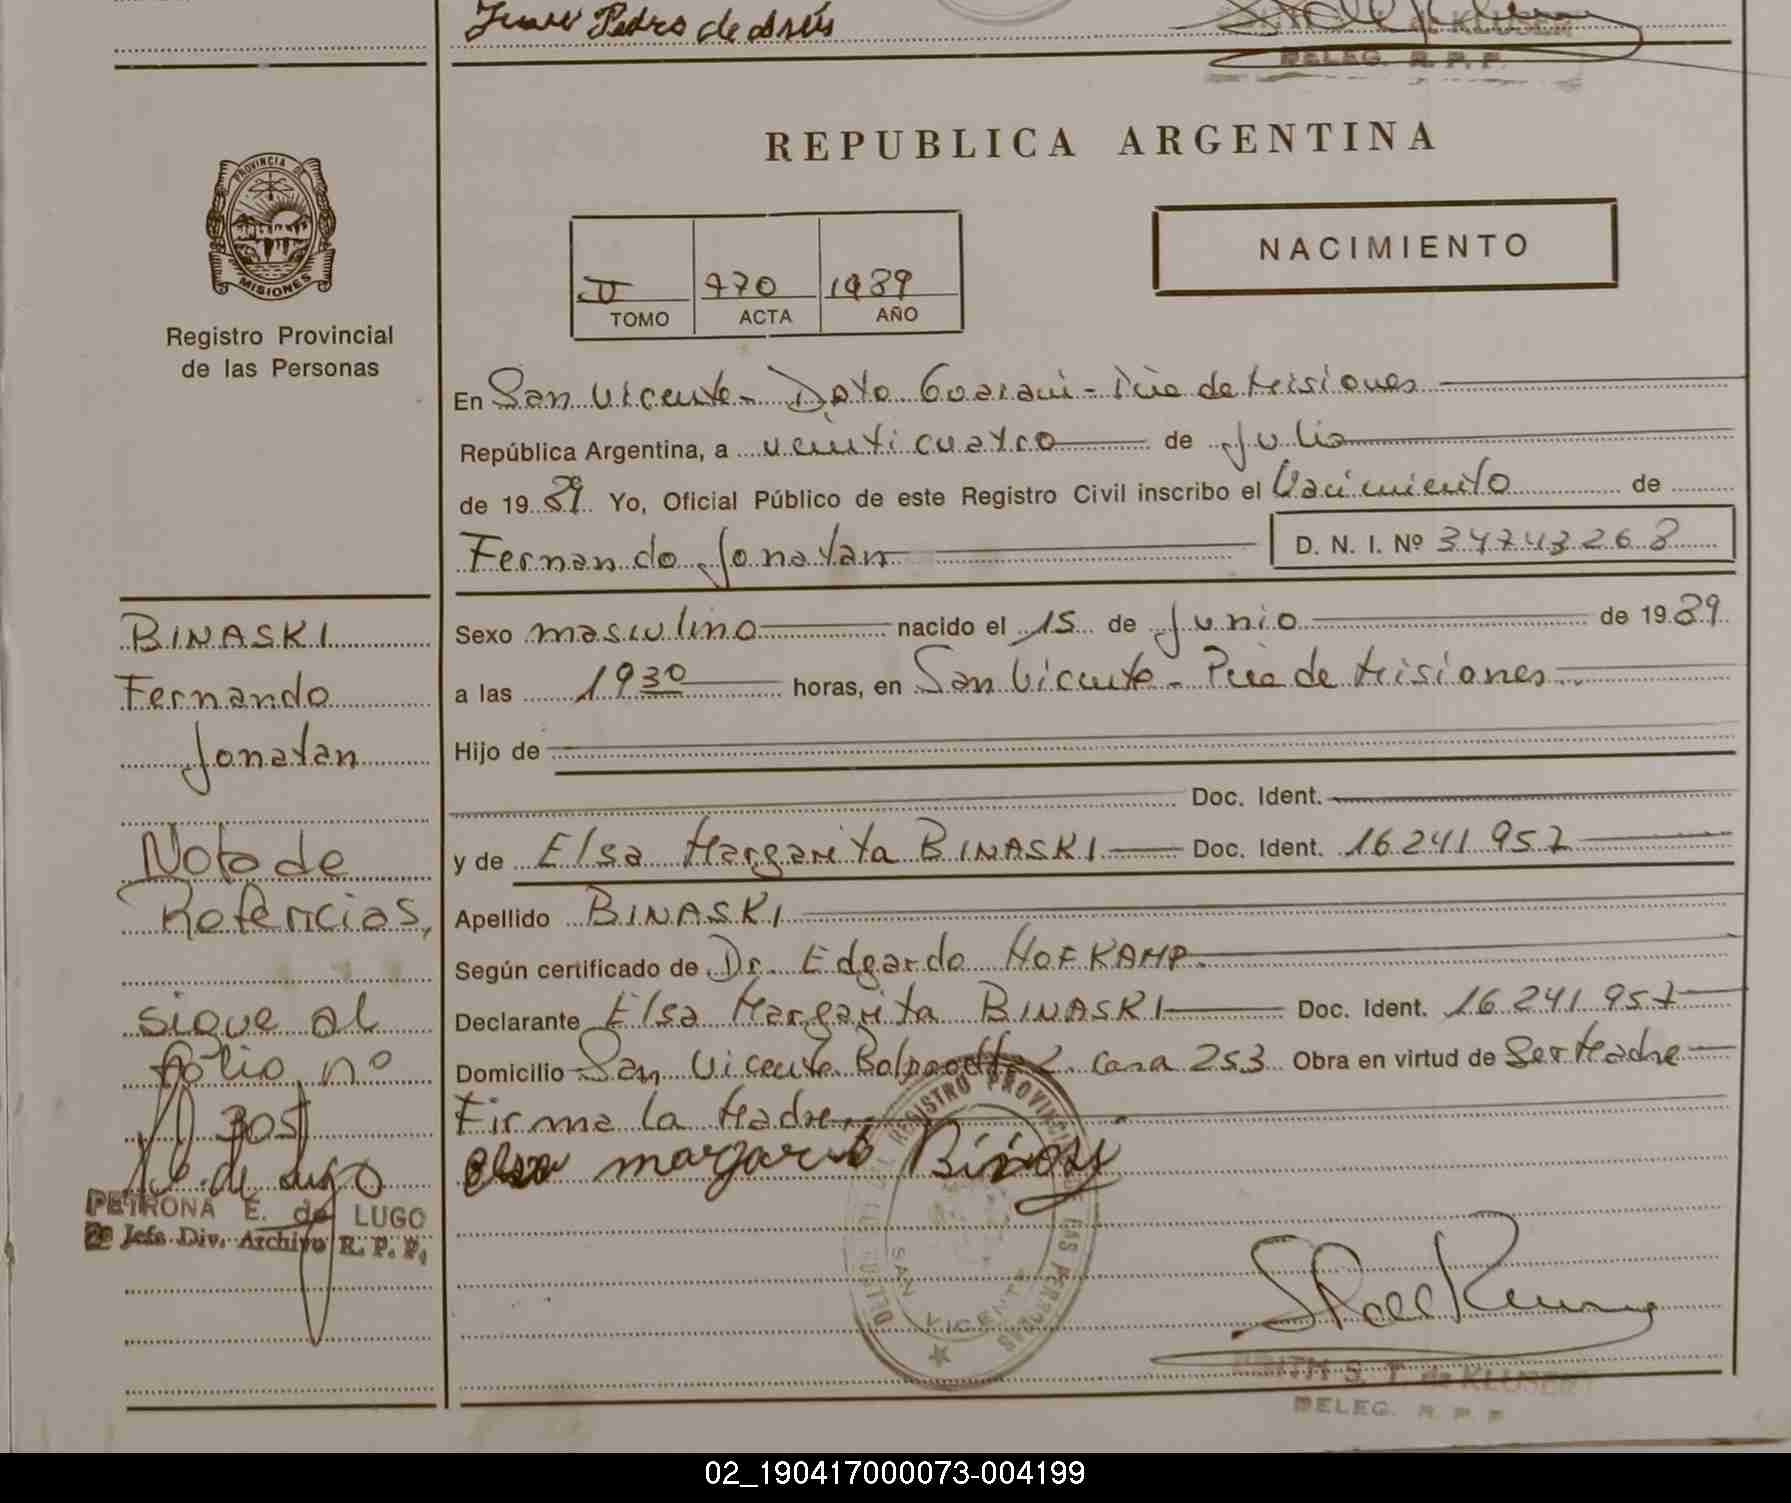 Juan Pedro de
de KLUSER
DELEG. R. P. P.
REPUBLICA ARGENTINA
PROVINCIA DE
MISIONES
Registro Provincial
de las Personas
NACIMIENTO
II 470 1989
TOMO ACTA AÑO
En San Vicente - Dpto Guarani - Pcia de Misiones
República Argentina, a veinticuatro de Julio
de 19 89 Yo, Oficial Público de este Registro Civil inscribo el Nacimiento de
Fernando Jonatan D. N. I. Nº 34743268
BINASKI
Fernando
Jonatan
Nota de
Refencias,
sigue al
folio nº
305
PETRONA E. de LUGO
2º Jefe Div. Archivo R. P. P.
Sexo masculino nacido el 15 de Junio de 19 89
a las 19 30 horas, en San Vicente - Pcia de Misiones
Hijo de
Doc. Ident.
y de Elsa Margarita BINASKI Doc. Ident. 16.241.957
Apellido BINASKI
Según certificado de Dr. Edgardo HOFKAMP.
Declarante Elsa Margarita BINASKI Doc. Ident. 16.241.957
Domicilio San Vicente casa 253 Obra en virtud de Ser Madre
Firma la Madre
elsa margarit Binasqi
REGISTRO PROVINCIAL DE LAS PERSONAS
SAN VICENTE
S. T. de KLUSER
DELEG. R. P. P.
02_190417000073-004199